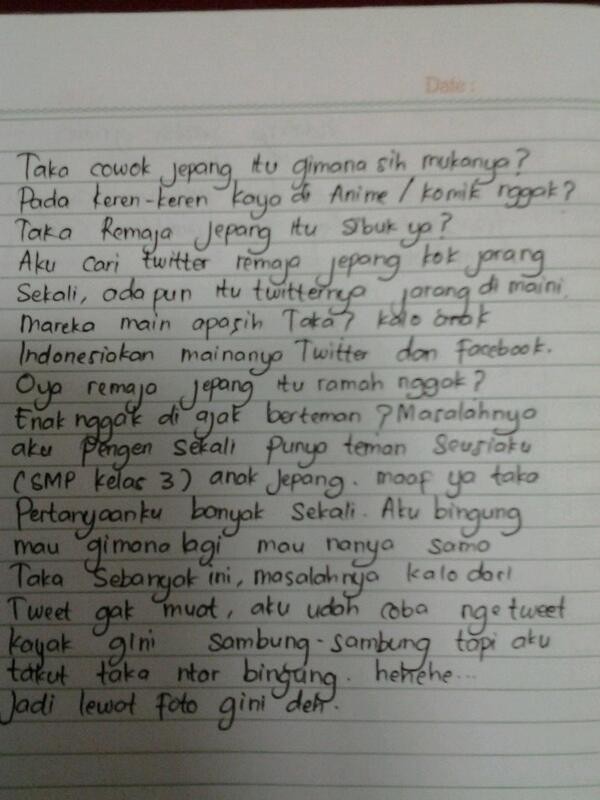 Date :
Taka cowok jepang itu gimana sih mukanya?
Pada keren-keren kaya di Anime / komik nggak?
Taka Remaja Jepang itu sibuk ya?
Aku cari twitter remaja jepang kok jarang
Sekali, ada pun itu twitternya jarang di maini.
Mareka main apasih Taka? kalo anak
Indonesiakan mainanya Twitter dan facebook.
Oya remaja jepang itu ramah nggak?
Enak nggak di ajak berteman? Masalahnya
aku pengen sekali punya teman Seusiaku
(SMP kelas 3) anak Jepang. maap ya taka
Pertanyaanku banyak sekali. Aku bingung
mau gimana lagi mau nanya sama
Taka Sebanyak ini, masalahnya kalo dari
Tweet gak muat, aku udah coba nge tweet
kayak gini sambung-sambung tapi aku
takut taka ntar bingung. hehehe...
Jadi lewat foto gini deh.